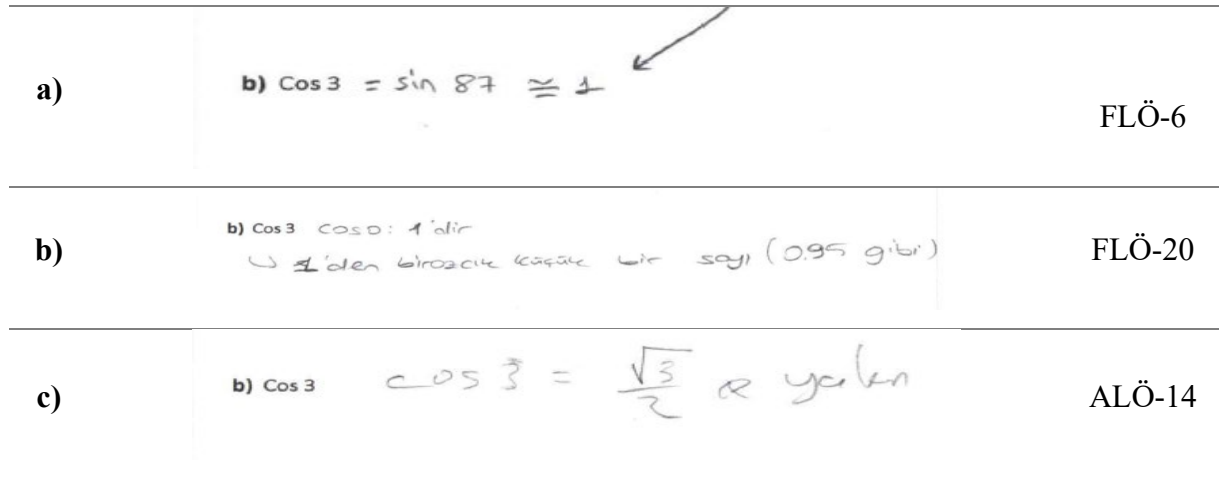 a)
b) Cos 3 = sin 87 ≅ 1
FLÖ-6
b)
b) Cos 3 cos 0: 1'dir
↳ 1'den birazcık küçük bir sayı (0.95 gibi)
FLÖ-20
c)
b) Cos 3 cos 3 = √3/2 e yakın
ALÖ-14